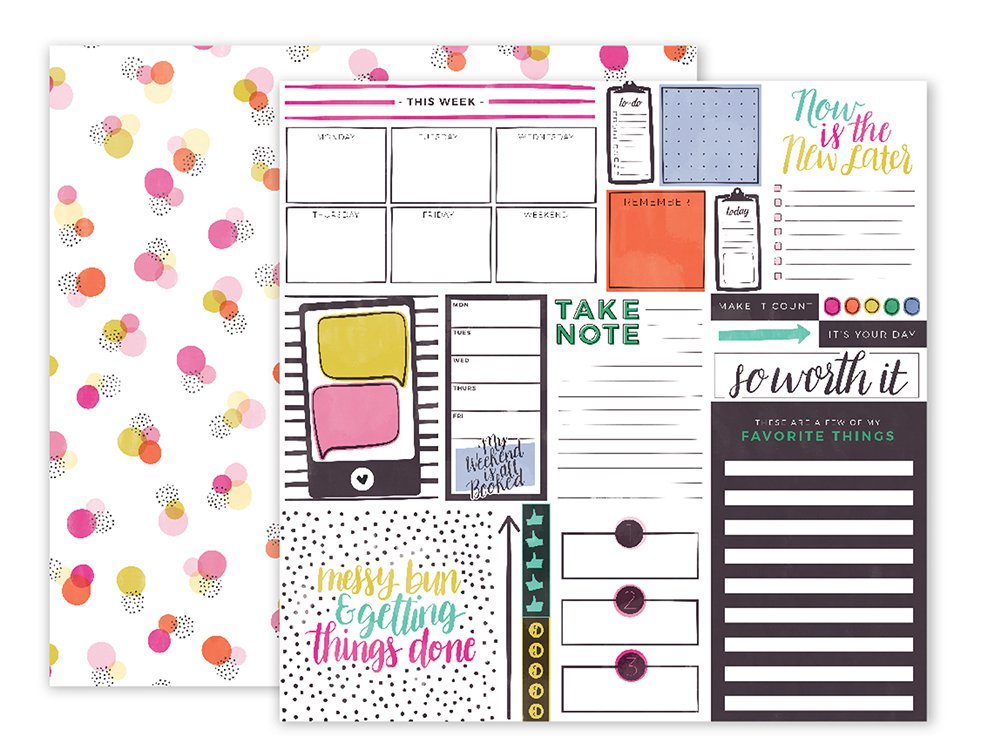 - THIS WEEK -
MONDAY
TUESDAY
WEDNESDAY
THURSDAY
FRIDAY
WEEKEND
to-do
REMEMBER
today
Now
is the
New Later
MON
TUES
WED
THURS
FRI
My
Weekend
is all
Booked
TAKE
NOTE
MAKE IT COUNT
IT'S YOUR DAY
so worth it
THESE ARE A FEW OF MY
FAVORITE THINGS
messy bun
& getting
things done
1
2
3